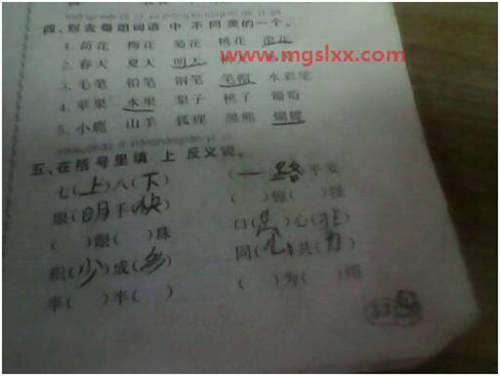 四、 每组词语 中 不 同 类的一个。
www.mgslxx.com
1. 荷花 梅花 菊花 桃花
2. 春天 夏天 明天
3. 毛笔 铅笔 钢笔 笔帽 水彩笔
4. 苹果 水果 梨子 桃子 葡萄
5. 小鹿 山羊 狐狸 黑熊 蝴蝶
五、在括号里填 上 反义词。
七(上)八(下) (一 路 平安
眼(明)手(快) ( ) ( )
( )眼( )珠 口(是)心(非)
积(少)成(多) 同( )共( )
半( )半( ) ( )为( )用